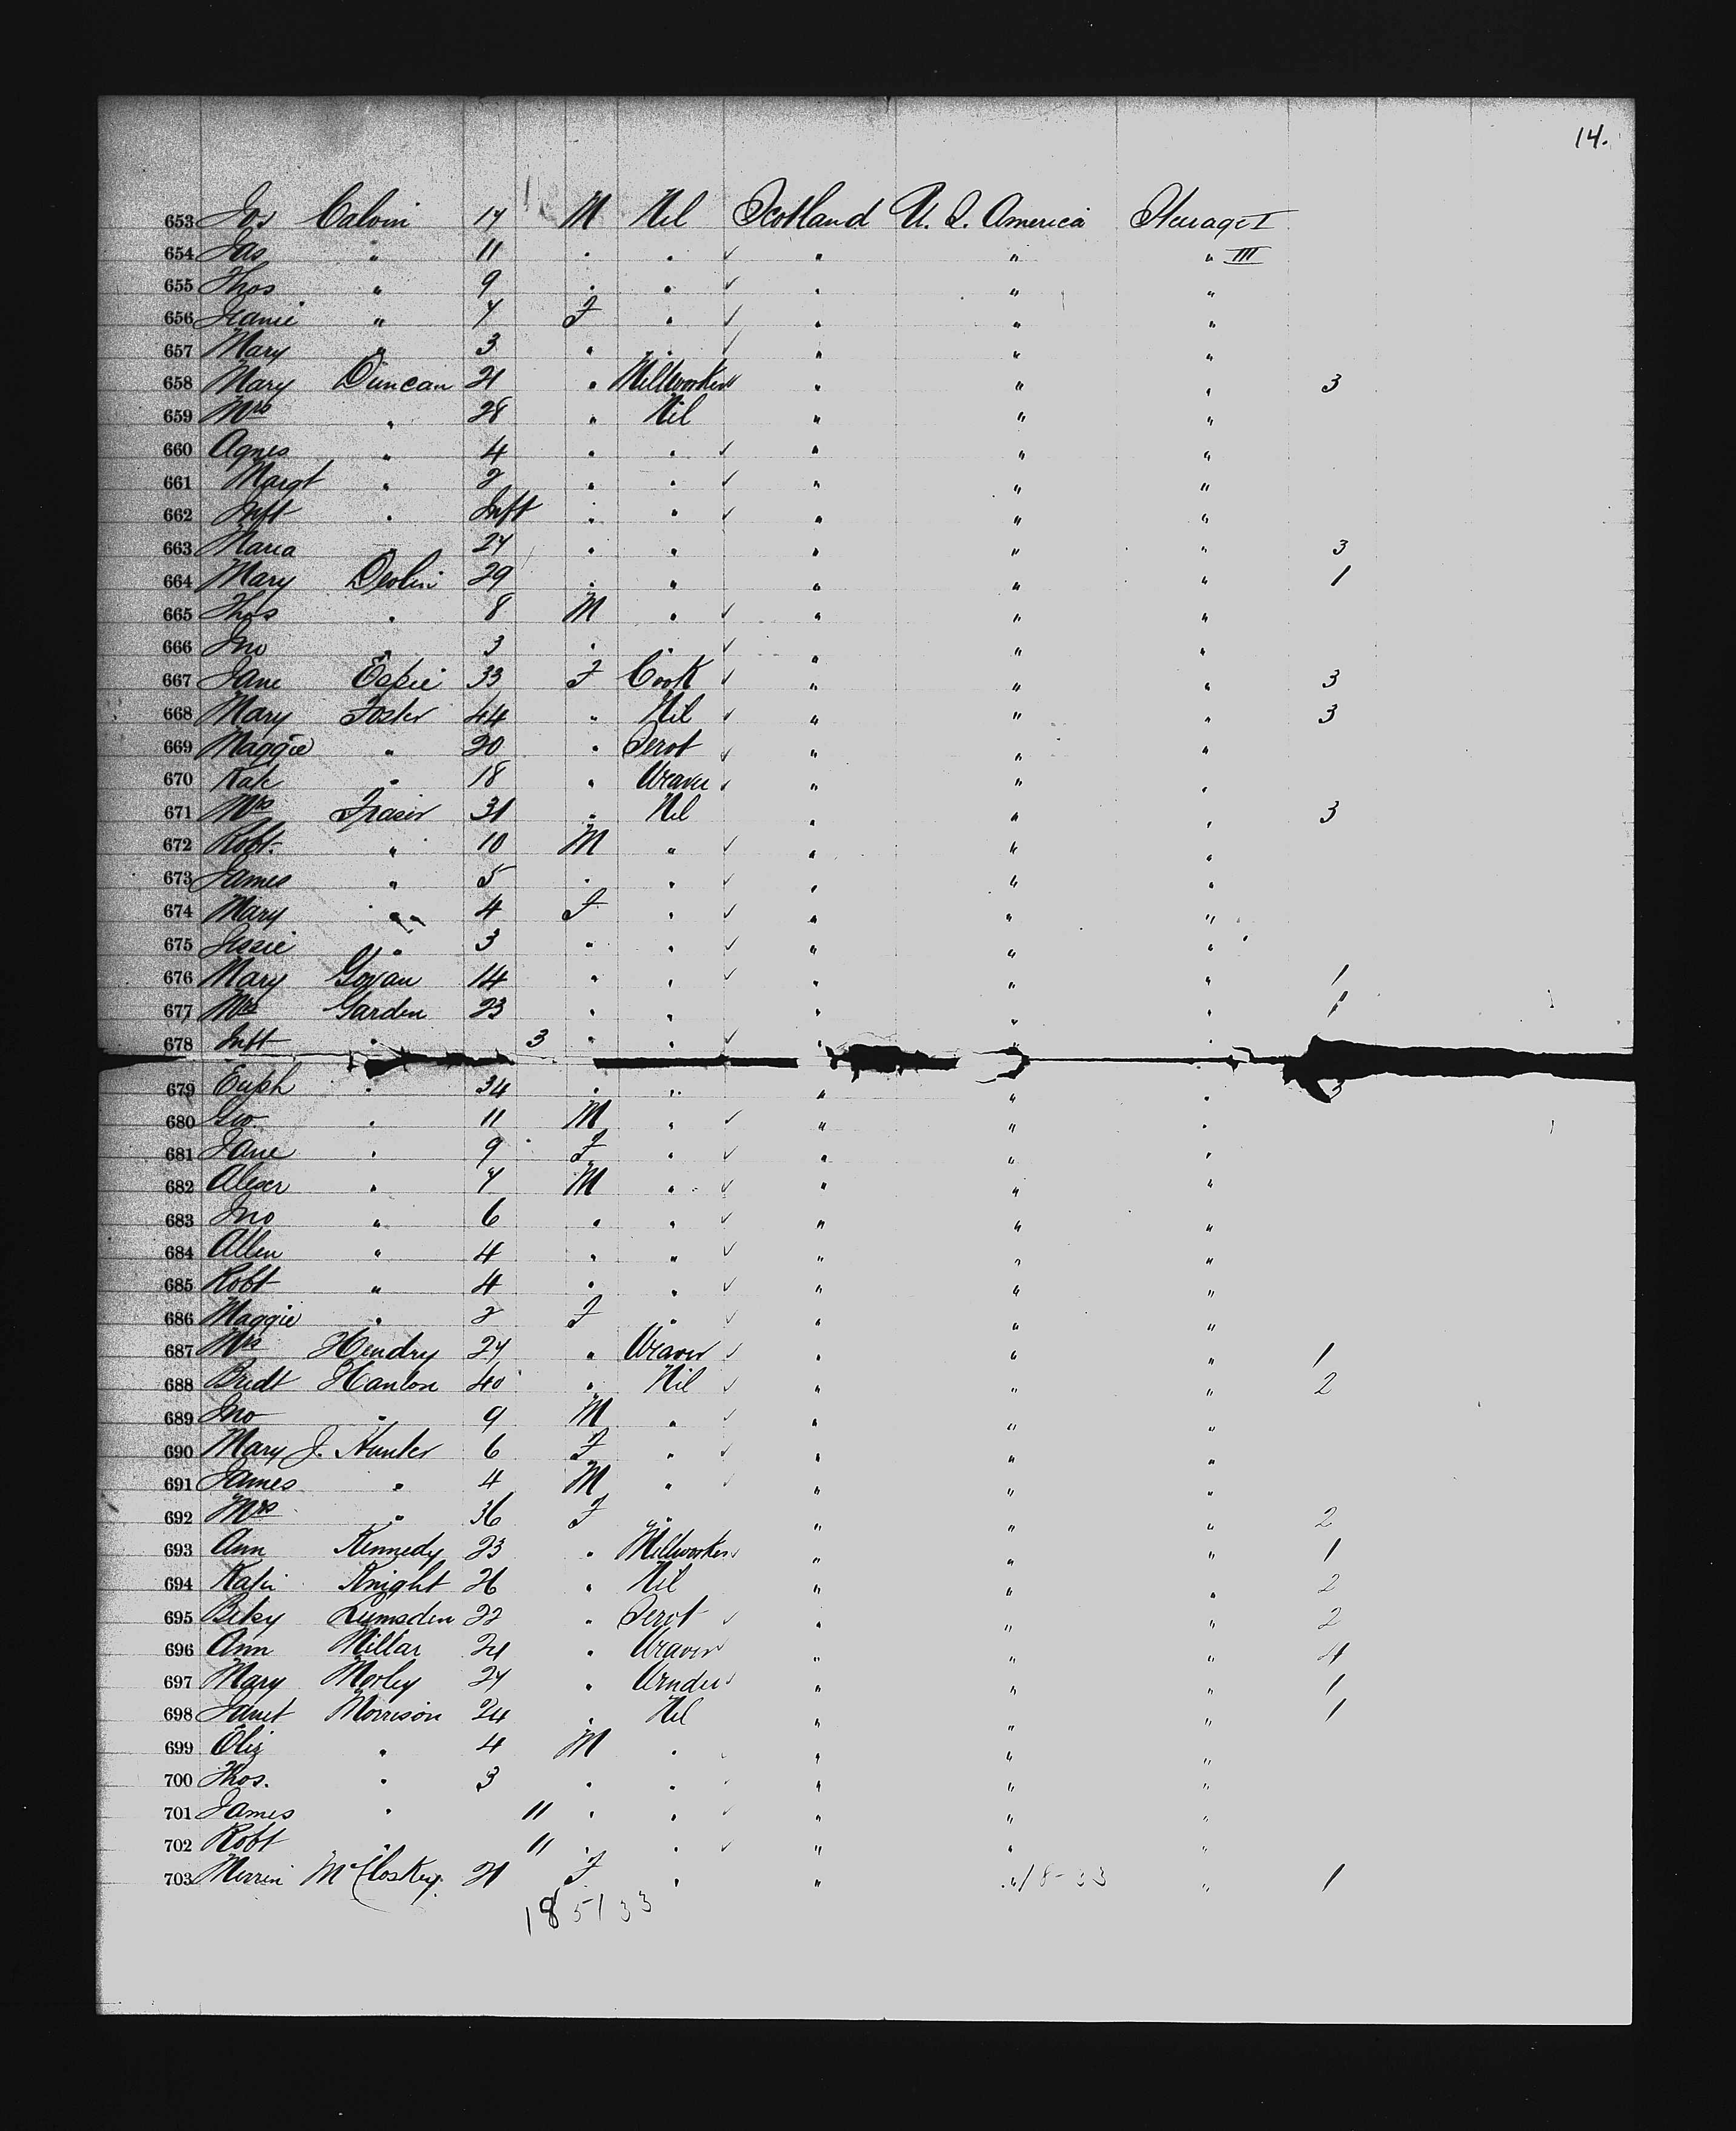 14.
653 Jos Calvin 17 M Nil Scotland U. S. America Steerage I
654 Jas " 11 " " ✓ " " " III
655 Thos " 9 " " ✓ " " "
656 Jeanie " 7 F " ✓ " " "
657 Mary " 3 " " ✓ " " "
658 Mary Duncan 21 " Millworker ✓ " " " 3
659 Mrs " 28 " Nil " " "
660 Agnes " 4 " " ✓ " " "
661 Margt " 2 " " ✓ " " "
662 Inft " Inft " " ✓ " " "
663 Maria " 27 " " " " " 3
664 Mary Devlin 29 " " " " " 1
665 Thos " 8 M " ✓ " " "
666 Jno " 3 " " ✓ " " "
667 Jane Espie 33 F Cook ✓ " " " 3
668 Mary Foster 44 " Nil ✓ " " " 3
669 Maggie " 20 " Servt ✓ " " "
670 Kate " 18 " Weaver ✓ " " "
671 Mrs Fraser 31 " Nil " " " 3
672 Robt. " 10 M " ✓ " " "
673 James " 5 " " ✓ " " "
674 Mary " 4 F " ✓ " " "
675 Jessie " 3 " " ✓ " " "
676 Mary Govan 14 " " ✓ " " " 1
677 Mrs Garden 23 " " " " " 1
678 Inft " 3 " " ✓ " " "
679 Euph " 34 " " " " " 3
680 Geo. " 11 M " ✓ " " "
681 Jane " 9 F " ✓ " " "
682 Alexr " 7 M " ✓ " " "
683 Jno " 6 " " ✓ " " "
684 Allen " 4 " " ✓ " " "
685 Robt " 4 " " ✓ " " "
686 Maggie " 2 F " ✓ " " "
687 Mrs Hendry 27 " Weaver ✓ " " " 1
688 Bridt Hanlon 40 " Nil ✓ " " " 2
689 Jno " 9 M " ✓ " " "
690 Mary J. Hunter 6 F " ✓ " " "
691 James " 4 M " ✓ " " "
692 Mrs " 36 F " " " " 2
693 Ann Kennedy 23 " Millworker ✓ " " " 1
694 Katie Knight 26 " Nil " " " 2
695 Betsy Lumsden 22 " Servt ✓ " " " 2
696 Ann Millar 21 " Weaver " " " 4
697 Mary Morley 27 " Winder ✓ " " " 1
698 Janet Morrison 24 " Nil " " " 1
699 " 4 M " " " "
700 Thos. " 3 " " ✓ " " "
701 James " 11 " " ✓ " " "
702 Robt " 11 " " ✓ " " "
703 McCloskey 21 F " " " 18-33 " 1
18 51 33